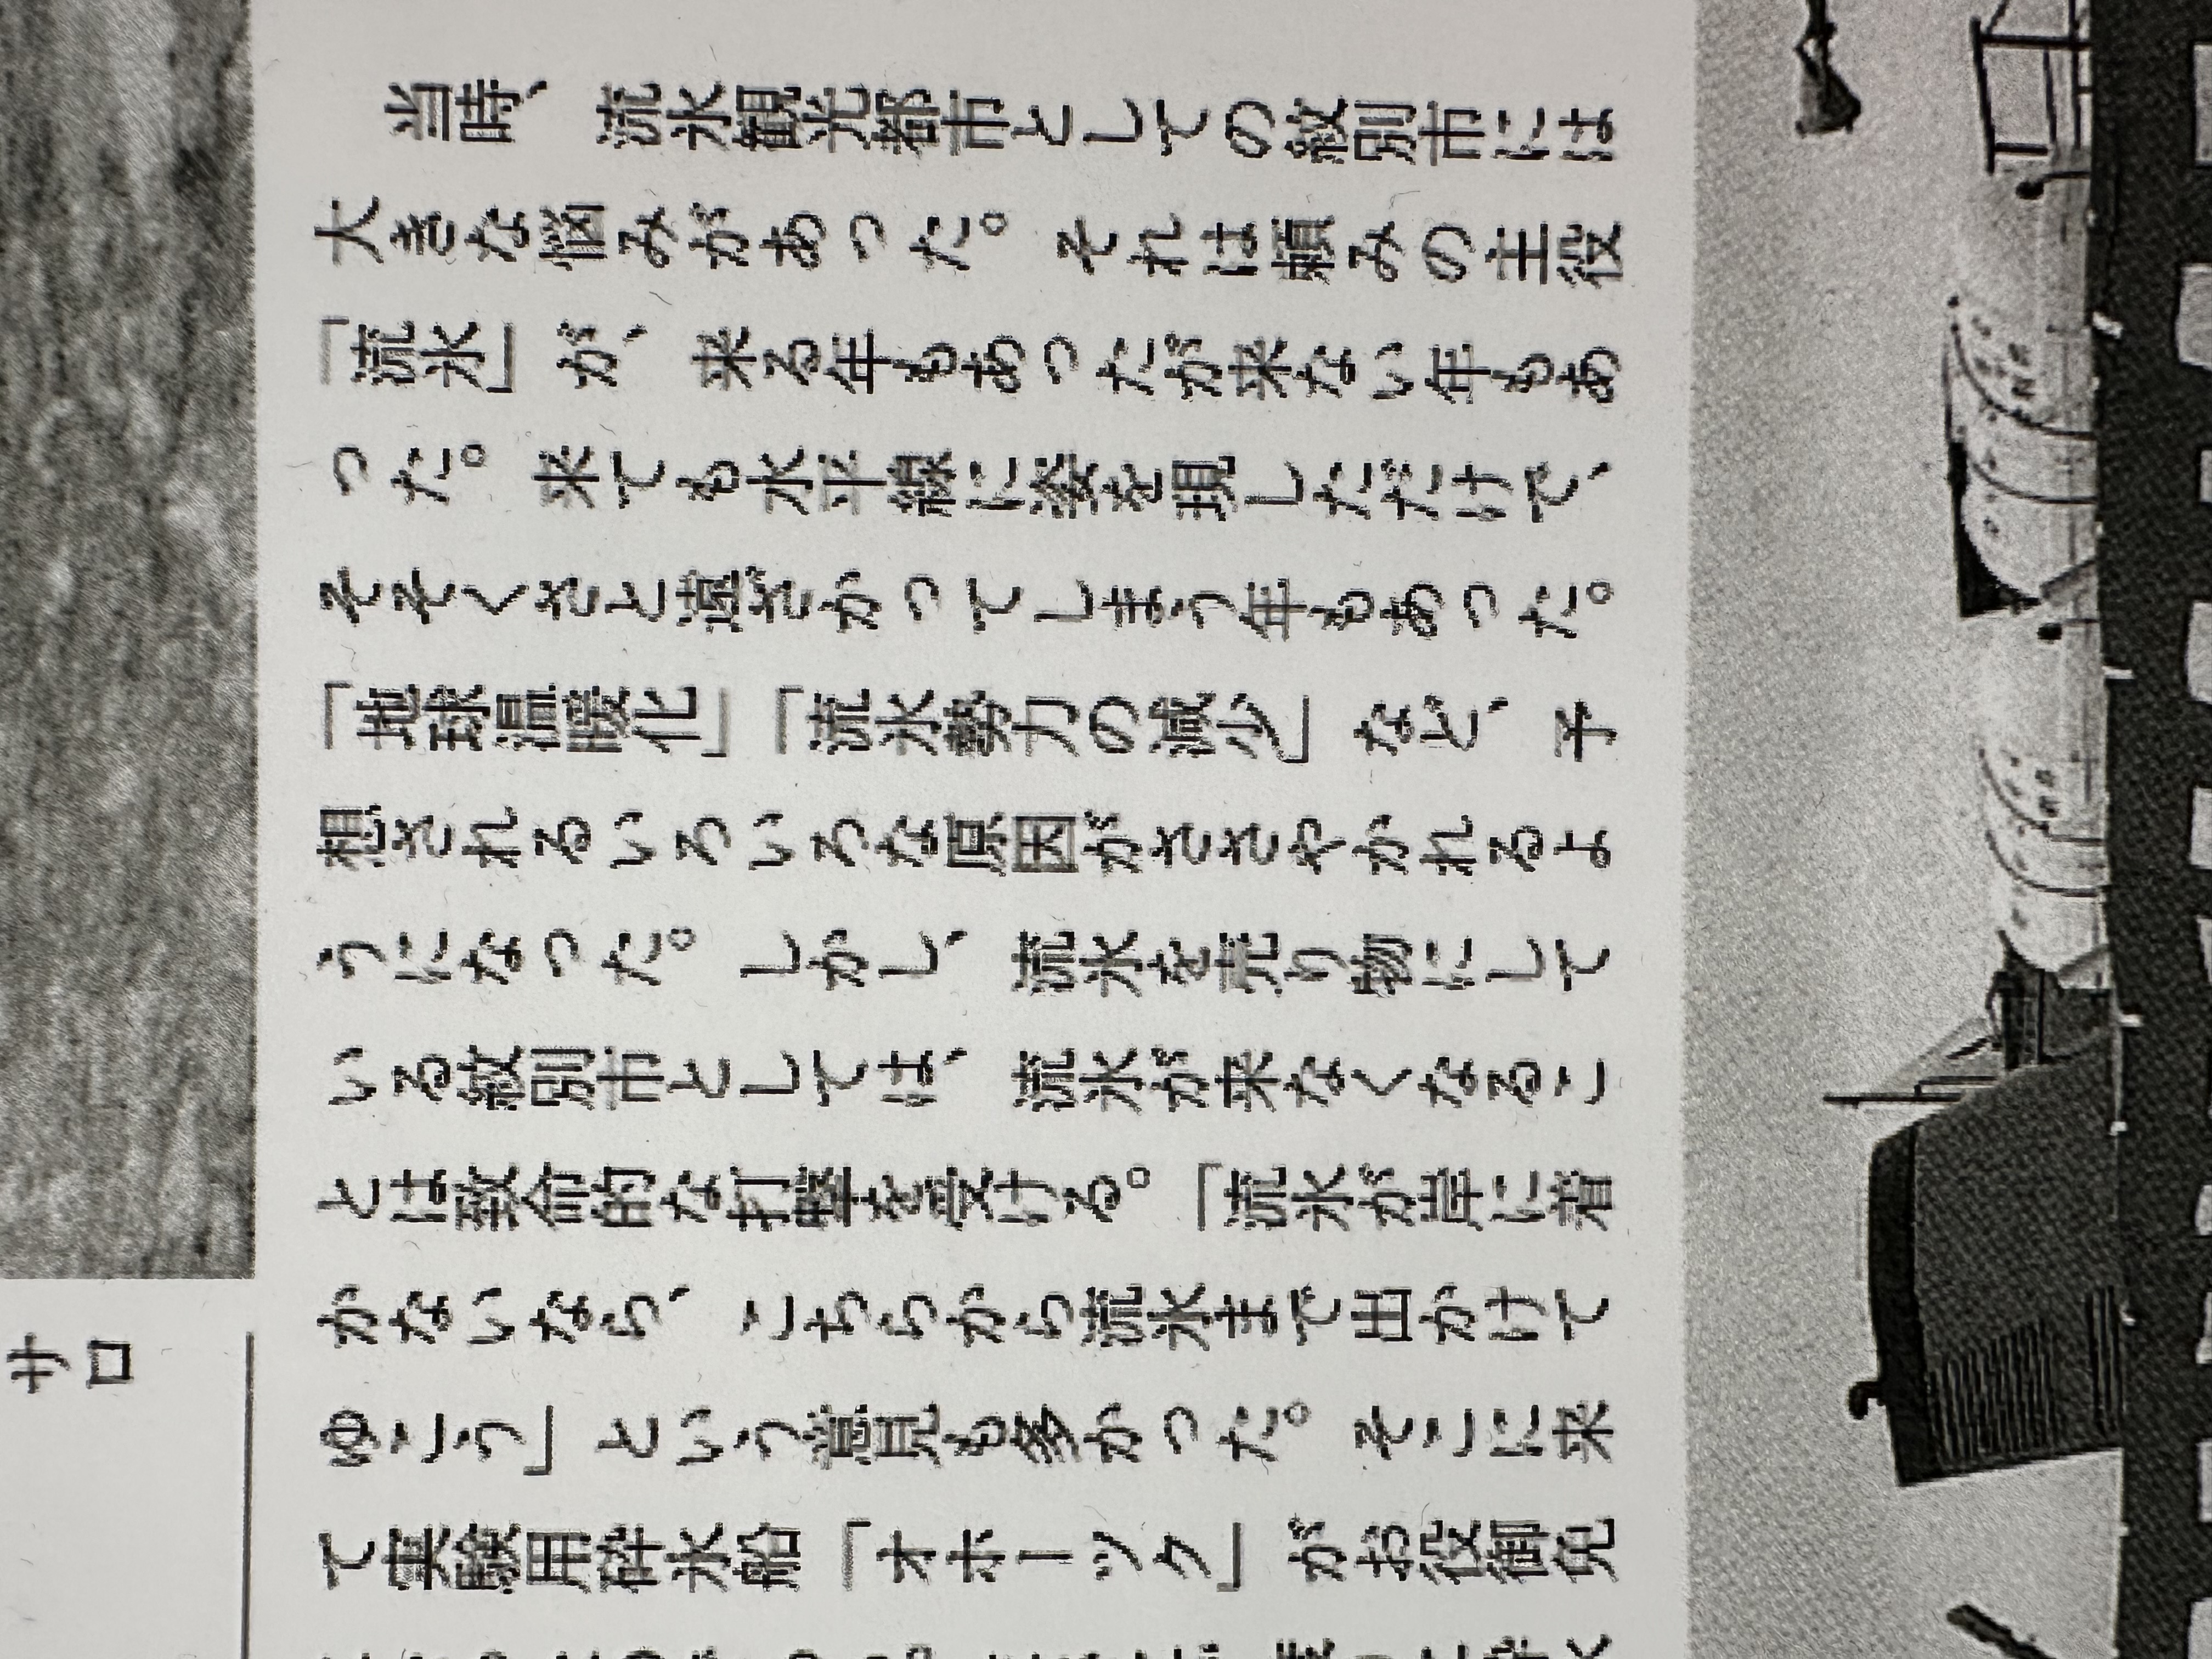 当時、流氷観光都市としての紋別市には
大きな悩みがあった。それは頼みの主役
「流氷」が、来る年もあったが来ない年もあ
った。来ても水平線に姿を現しただけで、
そそくさと遠ざかってしまう年もあった。
「地球温暖化」「流氷勢力の減少」など、予
想されるいろいろな原因がささやかれるよ
うになった。しかし、流氷を売り物にして
いる紋別市としては、流氷が来なくなるこ
とは致命的な打撃を受ける。「流氷が岸に着
かないなら、こちらから流氷まで出かけて
ゆこう」という意見も多かった。そこに来
て実験用砕氷船「オホーツク」がお役御免
サロ